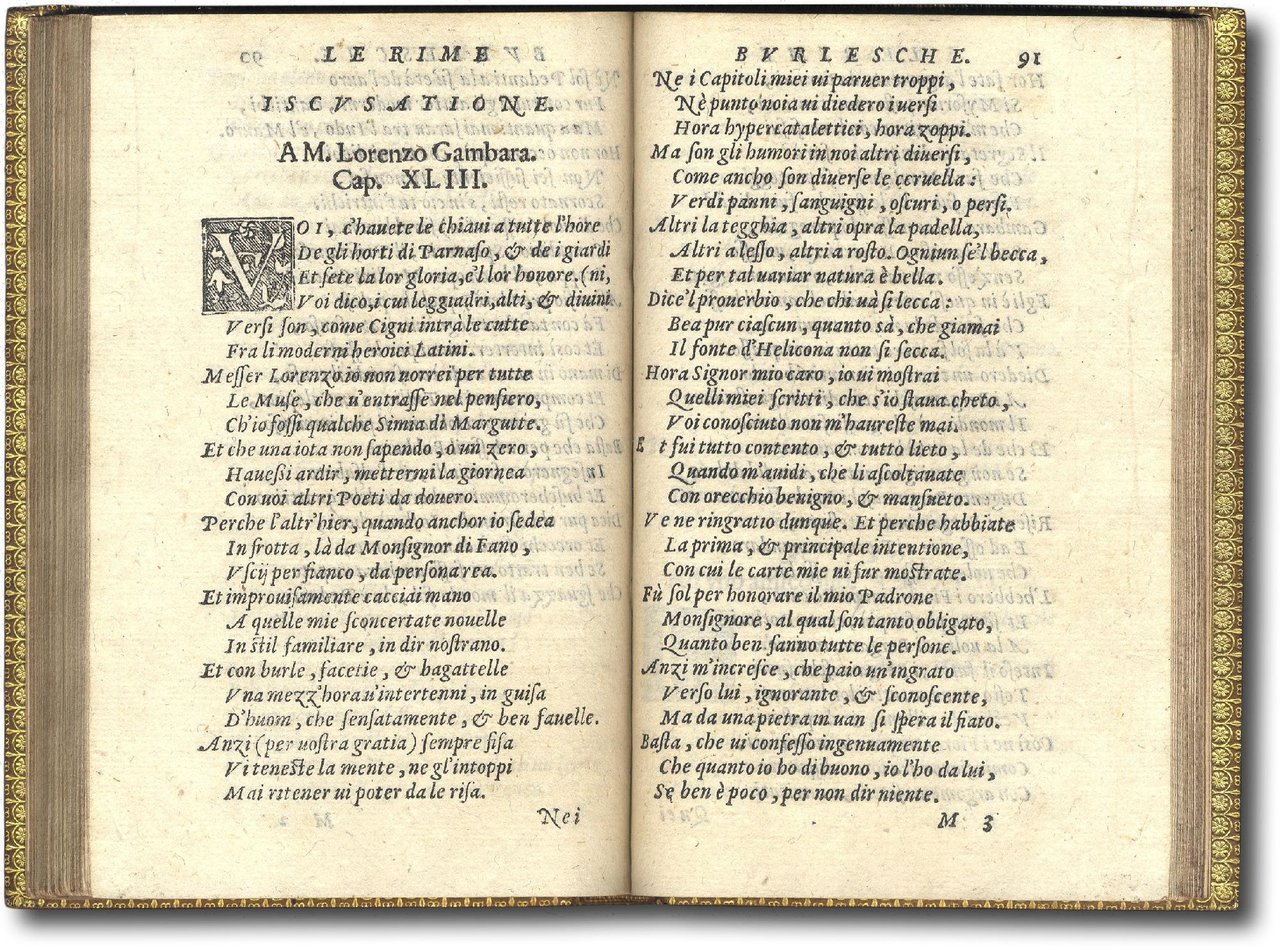 LE RIME
ISCVSATIONE.
A M. Lorenzo Gambara.
Cap. XLIII.
VOI, c'hauete le chiaui a tutte l'hore
De gli horti di Parnaso, & de i giardi
Et sete la lor gloria, e'l lor honore. (ni,
Voi dico, i cui leggiadri, alti, & diuini
Versi son, come Cigni intrà le cutte
Fra li moderni heroici Latini.
Messer Lorenzo io non uorrei per tutte
Le Muse, che u'entrasse nel pensiero,
Ch'io fossi qualche Simia di Margutte.
Et che una iota non sapendo, ò un zero,
Hauessi ardir, mettermi la giornea
Con uoi altri Poeti da douero.
Perche l'altr'hier, quando anchor io sedea
In frotta, là da Monsignor di Fano,
Vscij per fianco, da persona rea.
Et improuisamente cacciai mano
A quelle mie sconcertate nouelle
In stil familiare, in dir nostrano.
Et con burle, facetie, & bagattelle
Vna mezz'hora u'intertenni, in guisa
D'huom, che sensatamente, & ben fauelle.
Anzi (per uostra gratia) sempre fisa
Vi teneste la mente, ne gl'intoppi
Mai ritener ui poter da le risa.
Nei
BVRLESCHE. 91
Ne i Capitoli miei ui paruer troppi,
Nè punto noia ui diedero i uersi
Hora hypercatalettici, hora zoppi.
Ma son gli humori in noi altri diuersi
Come ancho son diuerse le ceruella:
Verdi panni, sanguigni, oscuri, o persi.
Altri la tegghia, altri opra la padella,
Altri a lesso, altri a rosto. Ogniun se'l becca,
Et per tal uariar natura è bella.
Dice'l prouerbio, che chi uà si lecca:
Bea pur ciascun, quanto sà, che giamai
Il fonte d'Helicona non si secca.
Hora Signor mio caro, io ui mostrai
Quelli miei scritti, che s'io staua cheto,
Voi conosciuto non m'haureste mai.
Et fui tutto contento, & tutto lieto,
Quando m'auidi, che li ascoltauate
Con orecchio benigno, & mansueto.
Ve ne ringratio dunque. Et perche habbiate
La prima, & principale intentione,
Con cui le carte mie ui fur mostrate.
Fù sol per honorare il mio Padrone
Monsignore, al qual son tanto obligato,
Quanto ben sanno tutte le persone.
Anzi m'incresce, che paio un'ingrato
Verso lui, ignorante, & sconoscente,
Ma da una pietra in uan si spera il fiato.
Basta, che ui confesso ingenuamente
Che quanto io ho di buono, io l'ho da lui,
Se ben è poco, per non dir niente.
M 3